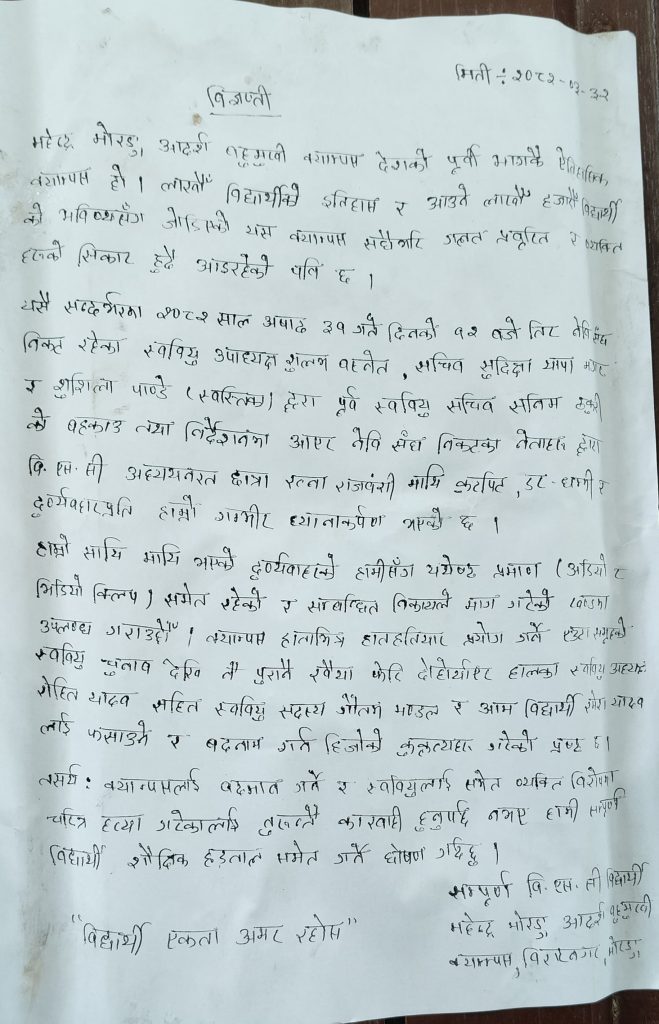 मिती ÷ २०८२-०३-३२
विज्ञप्ती
महेन्द्र मोरङ्ग, आदर्श बहुमुखी क्याम्पस देशको पूर्वी भागकै ऐतिहासिक
क्याम्पस हो । लाखौँ विद्यार्थीको इतिहास र आउने लाखौँ हजारौँ विद्यार्थी
को भविष्यसँग जोडिएको यस क्याम्पस सधैभरि गलत प्रवृत्ति र व्यक्ति
हरुको सिकार हुदै आइरहेको पनि छ ।
यसै सन्दर्भमा २०८२ साल अषाढ ३१ गते दिनको १२ बजे तिर नेवि सँघ
निकट रहेका स्ववियु उपाध्यक्ष शुलभ बस्नेत, सचिव सुदिक्षा थापा मगर
र शुशिला पाण्डे (स्वस्तिका) द्वारा पूर्व स्ववियु सचिव सनिम ठकुरी
को बहकाउ तथा निर्देशनमा आएर नेवि सँघ निकटका नेताहरु द्वारा
बि. एस. सी अध्ययनरत छात्रा रत्ना राजवंशी माथि कुटपिट, डर-धाम्की र
दुर्व्यवहारप्रति हाम्रो गम्भीर ध्यानाकर्षण भएको छ ।
हाम्रो साथि माथि भएको दुर्व्यवाहारको हामीसँग यथेष्ट प्रमाण (अडियो र
भिडियो क्लिप) समेत रहेको र सम्बन्धित निकायले माग गरेको खण्डमा
उपलब्ध गराउछौँ । क्याम्पस हाताभित्र हातहतियार प्रयोग गर्ने समुहको
स्ववियु चुनाव देखि नै पुरानै रवैया फेरि दोहोर्याएर हालका स्ववियु अध्यक्ष
रोहित यादव सहित स्ववियु सदस्य गौतम मण्डल र आम विद्यार्थी यादव
लाई फसाउने र बदनाम गर्न हिजोको कुकृत्यहरु गरेको प्रष्ट छ ।
तसर्थ: क्याम्पसलाई बदनाम गर्ने र स्ववियुलाई समेत व्यक्ति विशेषमा
चरित्र हत्या गरेकालाई तुरुन्तै कारवाही हुनुपर्छ नभए हामी सम्पूर्ण
विद्यार्थी शैक्षिक हडताल समेत गर्ने घोषणा गर्दछु ।
सम्पूर्ण बि. एस. सी विद्यार्थी
महेन्द्र मोरङ्ग, आदर्श बहुमुखी
क्याम्पस, विराटनगर, मोरङ्ग,
"विद्यार्थी एकता अमर रहोस"